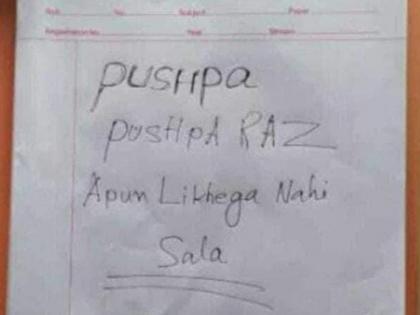 Roll No. Subject Paper
Registration No. Year Stream
PUSHPA
PUSHPA RAZ
Apun Likhega Nahi
Sala